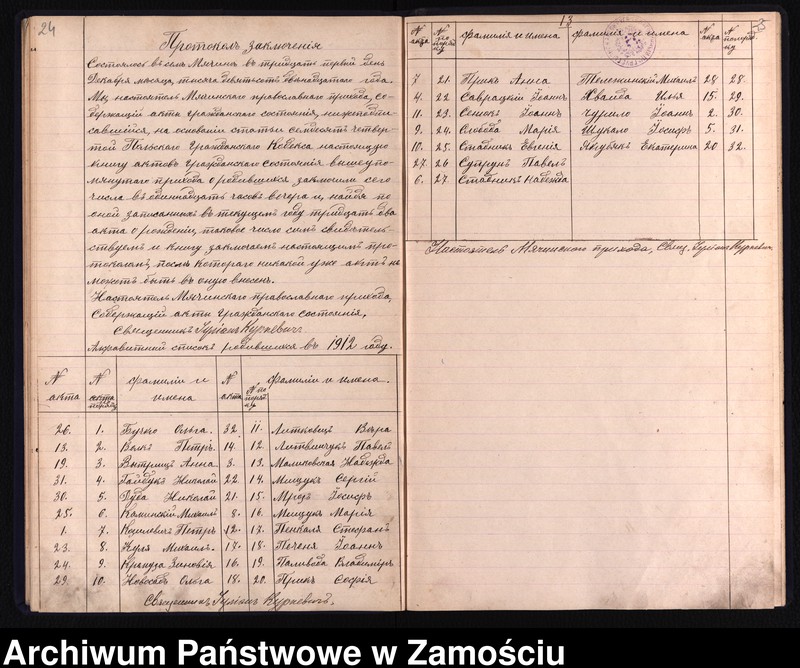 24
Протоколъ заключенія
Состоялось въ селѣ Мячинѣ въ тридцать первый день
Декабря мѣсяца, тысяча девятьсотъ двѣнадцатаго года.
Мы, настоятель Мячинскаго православнаго прихода, со-
держащій акты гражданскаго состоянія, нижеподпи-
савшійся, на основаніи статьи семдесятъ четвер-
той Польскаго Гражданскаго Кодекса настоящую
книгу актовъ гражданскаго состоянія вышеупо-
мянутаго прихода о родившихся заключили сего
числа въ одиннадцать часовъ вечера и, найдя по
оной записанныхъ въ текущемъ году тридцать два
акта о рожденіи, таковое число симъ свидѣтель-
ствуемъ и книгу заключаемъ настоящимъ про-
токоломъ, послѣ котораго никакой уже актъ не
можетъ быть въ оную внесенъ.
Настоятель Мячинскаго православнаго прихода,
Содержащій акты гражданскаго состоянія,
Священникъ Іуліанъ Курневичъ
Алфавитный списокъ родившихся въ 1912 году.
N акта N по порядку фамиліи и имена N акта N по порядку фамиліи и имена.
26. 1. Бучко Ольга. 32. 11. Литковецъ Вѣра
13. 2. Волкъ Петръ. 14. 12. Литвинчукъ Павелъ
19. 3. Вытрищъ Анна. 3. 13. Малиновская Надежда
31. 4. Гайдукъ Николай 22. 14. Мищукъ Сергій
30. 5. Дуда Николай 21. 15. Мрозъ Іосифъ
25. 6. Каминскій Михаилъ 8. 16. Мищукъ Марія
1. 7. Киселевичъ Петръ 12. 17. Пенкаля Стефанъ
23. 8. Куля Михаилъ. 17. 18. Печеня Іоаннъ
24. 9. Крапуза Зиновія 16. 19. Паливода Владиміръ
29. 10. Новосадъ Ольга 18. 20. Прикъ Софія
Священникъ Іуліанъ Курневичъ.
13
N акта N по порядку фамилія и имена фамилія и имена N акта N по порядку
7 21. Прикъ Анна Тележинскій Михаилъ 28 28.
4. 22 Саврацкій Іоаннъ Хвайда Илья 15. 29.
11. 23. Сенюкъ Іоаннъ Чурило Іоаннъ 2. 30.
9. 24. Слобода Марія Шукало Іосифъ 5. 31.
10. 25. Ставникъ Евгенія Якубякъ Екатерина 20 32.
27. 26 Супрунъ Павелъ
6. 27. Ставникъ Надежда
Настоятель Мячинскаго прихода, Свящ. Іуліанъ Курневичъ
Archiwum Państwowe w Zamościu